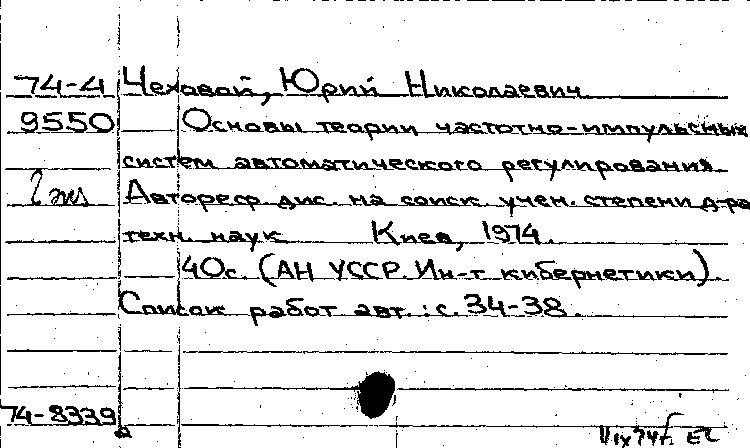 74-4 Чеховой, Юрий Николаевич.
9550 Основы теории частотно-импульсных
систем автоматического регулирования.
2 экз Автореф. дис. на соиск. учен. степени д-ра
техн. наук Киев, 1974.
40с. (АН УССР. Ин-т кибернетики).
Список работ авт.: с. 34-38.
74-8339